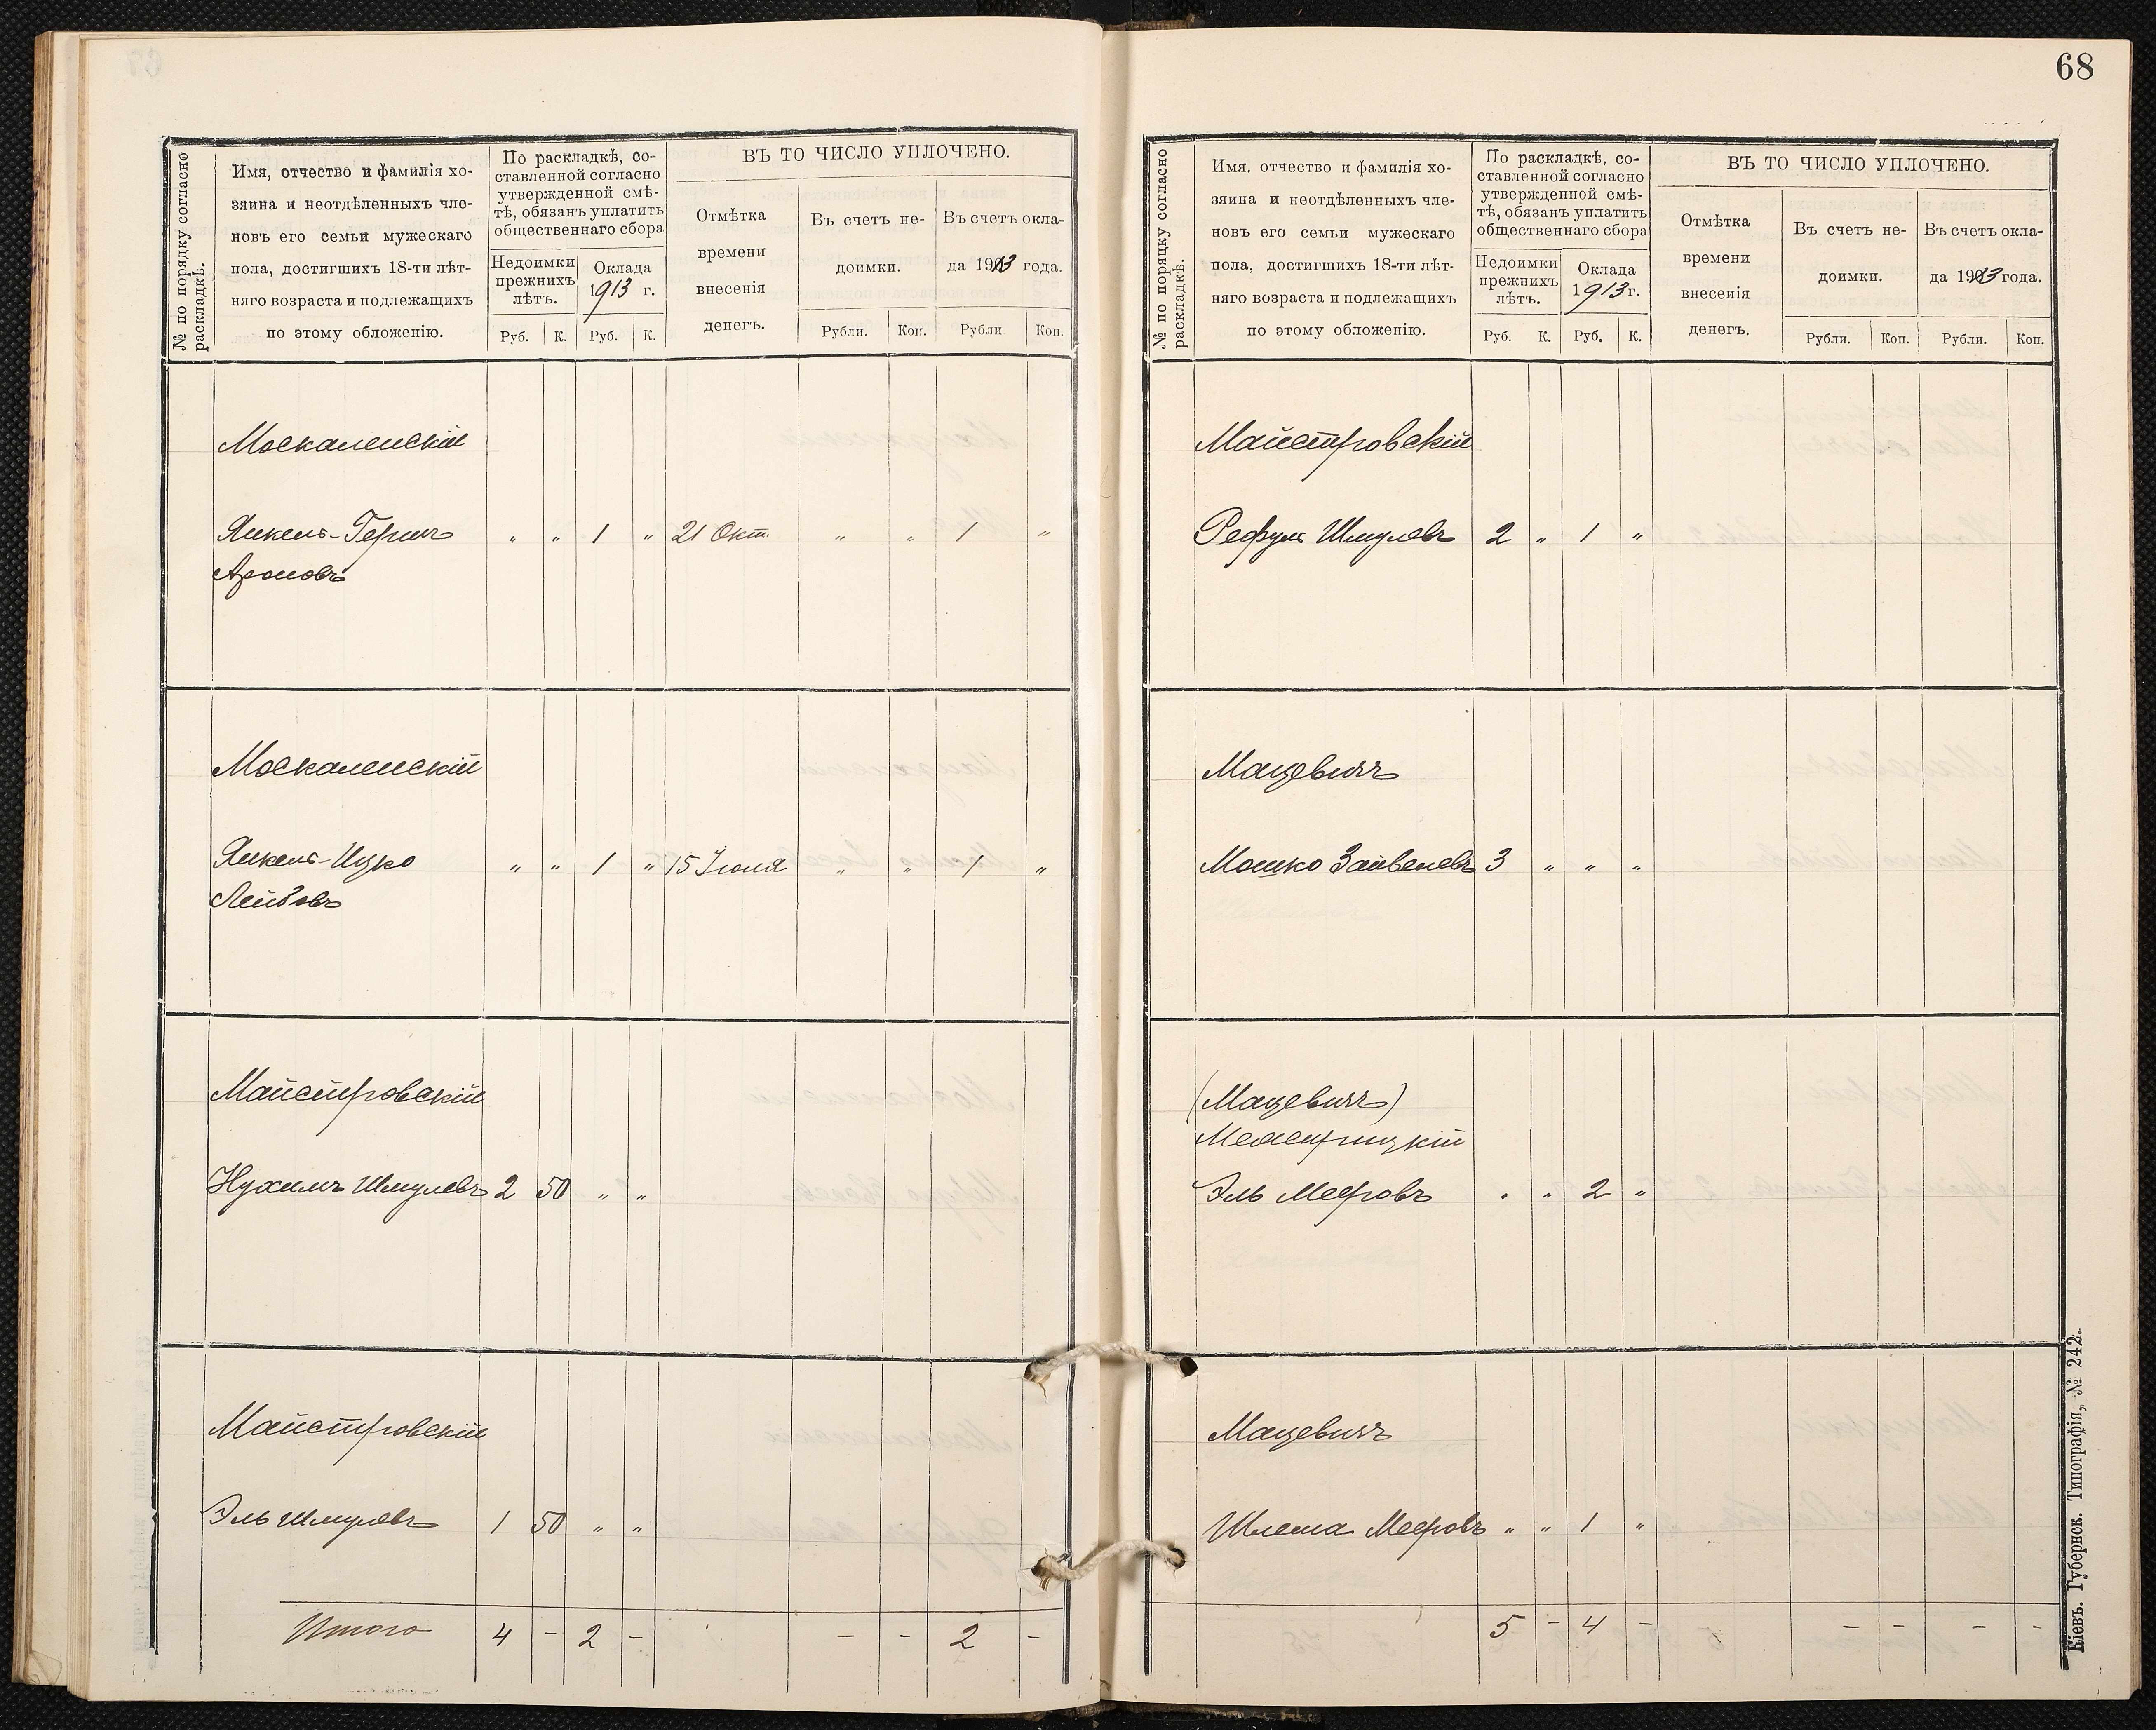 № по порядку согласно
раскладкѣ.
Имя, отчество и фамилія хо-
зяина и неотдѣленныхъ чле-
новъ его семьи мужескаго
пола, достигшихъ 18-ти лѣт-
няго возраста и подлежащихъ
по этому обложенію.
По раскладкѣ, со-
ставленной согласно
утвержденной смѣ-
тѣ, обязанъ уплатить
общественнаго сбора
Недоимки
прежнихъ
лѣтъ.
Оклада
1913 г.
Руб. К. Руб. К.
ВЪ ТО ЧИСЛО УПЛОЧЕНО.
Отмѣтка
времени
внесенія
денегъ.
Въ счетъ не-
доимки.
Въ счетъ окла-
да 1913 года.
Рубли. Коп. Рубли Коп.
Москаленскій
Янкель-Гершъ " " 1 " 21 Окт. " " 1 "
Ароновъ
Москаленскій
Янкель-Ицко " " 1 " 15 Іюля " " 1 "
Лейбовъ
Майстровскій
Нухимъ Шмулевъ 2 50 " "
Майстровскій
Эль Шмулевъ 1 50 " "
Итого 4 - 2 - - - 2 -
68
№ по порядку согласно
раскладкѣ.
Имя. отчество и фамилія хо-
зяина и неотдѣленныхъ чле-
новъ его семьи мужескаго
пола, достигшихъ 18-ти лѣт-
няго возраста и подлежащихъ
по этому обложенію.
По раскладкѣ, со-
ставленной согласно
утвержденной смѣ-
тѣ, обязанъ уплатить
общественнаго сбора
Недоимки
прежнихъ
лѣтъ.
Оклада
1913 г.
Руб. К. Руб. К.
ВЪ ТО ЧИСЛО УПЛОЧЕНО.
Отмѣтка
времени
внесенія
денегъ.
Въ счетъ не-
доимки.
Въ счетъ окла-
да 1913 года.
Рубли. Коп. Рубли. Коп.
Майстровскій
Рефулъ Шмулевъ 2 " 1 "
Мацевичъ
Мошко Зайвелевъ 3 " " "
(Мацевичъ)
Межерицкій
Эль Мееровъ " " 2 "
Мацевичъ
Шлема Мееровъ " " 1 "
5 - 4 - - - - -
Кіевъ. Губернск. Типографія, № 242.